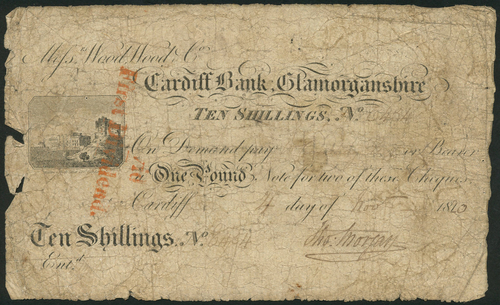 Mess.rs Wood, Wood & Co.
Cardiff Bank, Glamorganshire
TEN SHILLINGS, No.
On Demand pay or Bearer
a One Pound Note for two of these Cheques
Cardiff 4 day of Nov 182
Ten Shillings. No.
Ent.d
First Dividend.